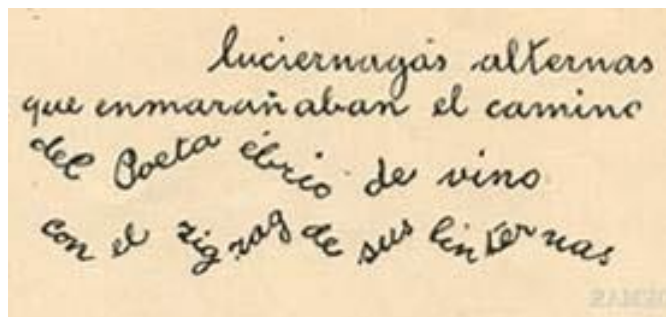 luciernagas alternas
que enmarañaban el camino
del Poeta ébrio de vino
con el zig zag de sus linternas